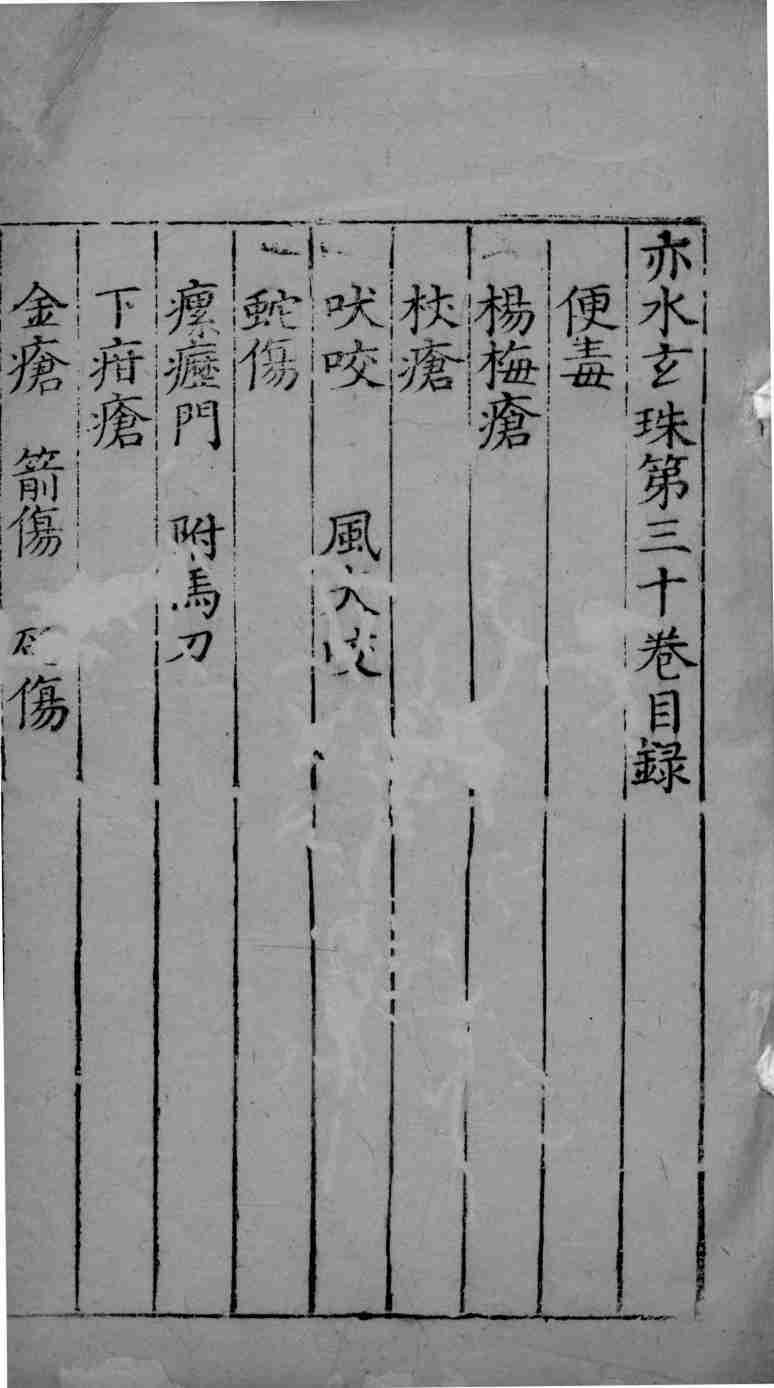 亦水玄珠第三十卷目録
便毒
楊梅瘡
杖瘡
吠咬 風犬咬
蛇傷
瘰癧門 附馬刀
下疳瘡
金瘡 箭傷 傷